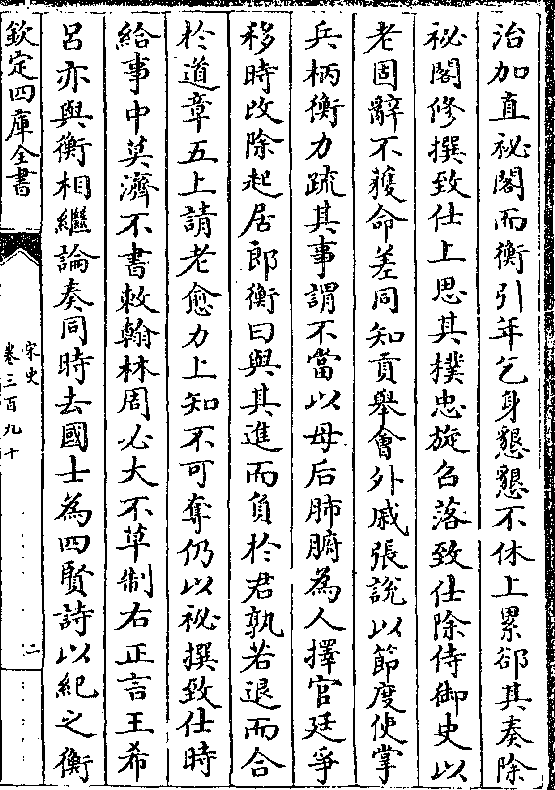 治加直祕閣而衡引年乞身懇懇不休上累郤其奏除
祕閣修撰致仕上思其樸忠旋召落致仕除侍御史以
老固辭不獲命差同知貢舉會外戚張說以節度使掌
兵柄衡力疏其事謂不當以母后肺腑為人擇官廷爭
移時改除起居郎衡曰與其進而負於君孰若退而合
於道章五上請老愈力上知不可奪仍以祕撰致仕時
給事中莫濟不書敕翰林周必大不草制右正言王希
呂亦與衡相繼論奏同時去國士為四賢詩以紀之衡
欽定四庫全書
宋史
卷三百九十
二